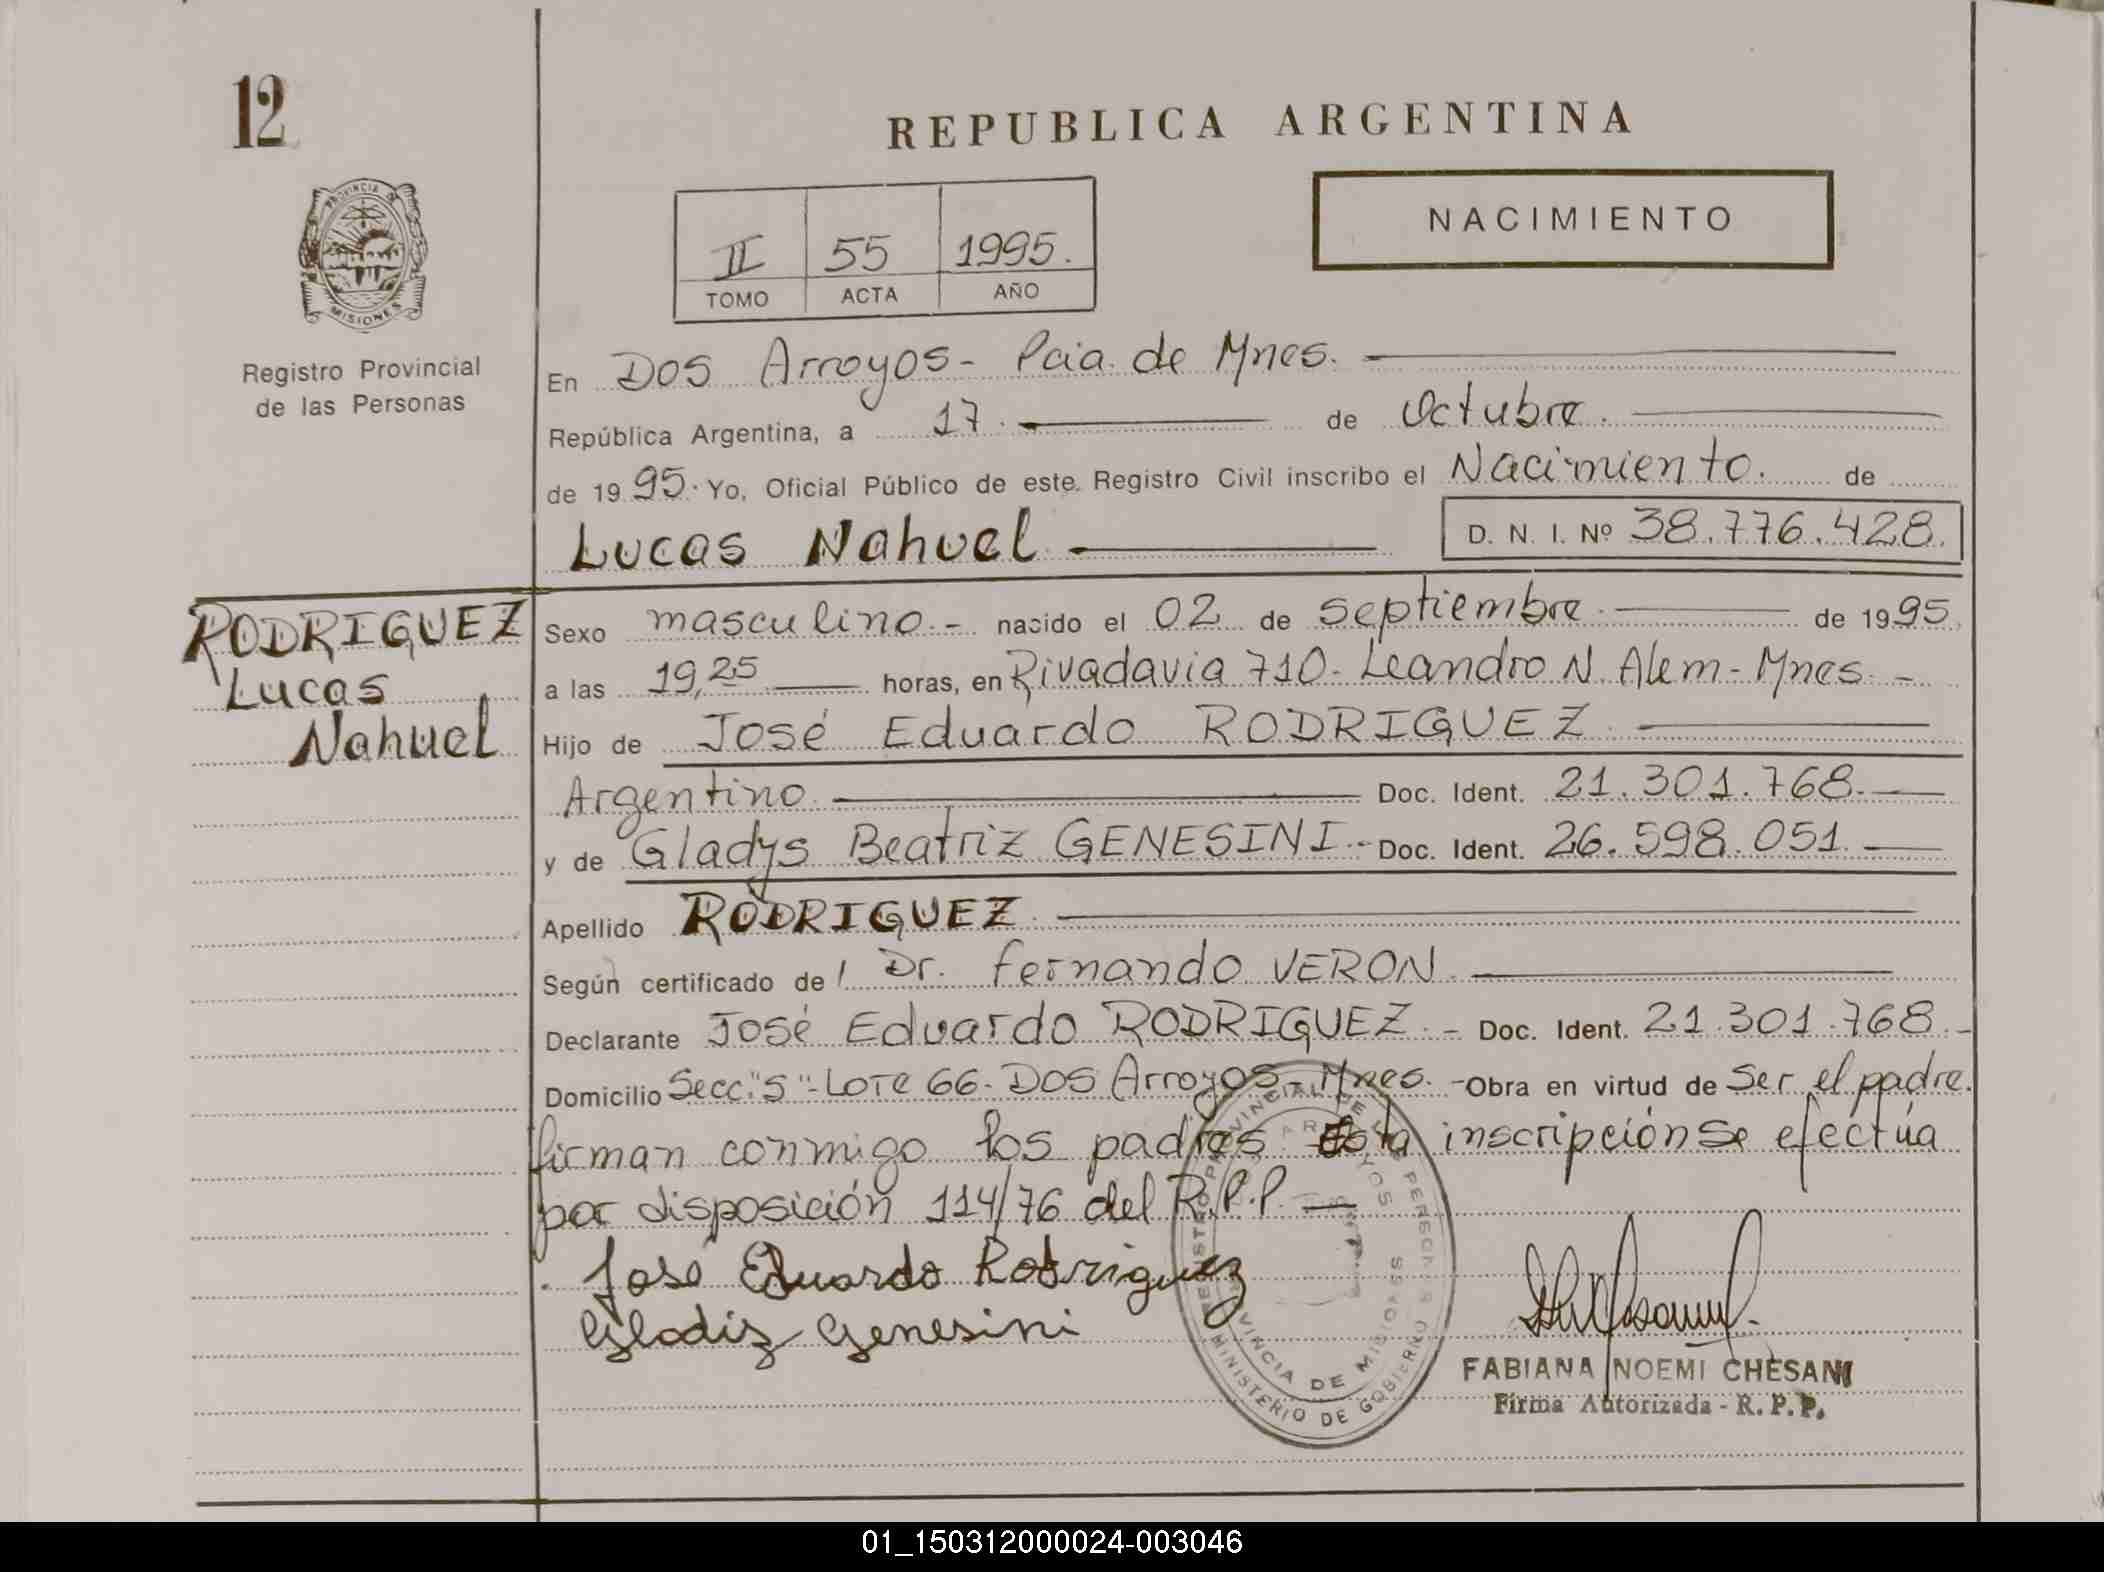 12
REPUBLICA ARGENTINA
PROVINCIA DE
MISIONES
NACIMIENTO
II 55 1995.
TOMO ACTA AÑO
Registro Provincial
de las Personas
En Dos Arroyos - Pcia. de Mnes.
República Argentina, a 17. de Octubre.
de 1995. Yo, Oficial Público de este Registro Civil inscribo el Nacimiento. de
Lucas Nahuel D. N. I. Nº 38.776.428.
RODRIGUEZ
Lucas
Nahuel
Sexo masculino.- nacido el 02 de septiembre. de 1995
a las 19,25 horas, en Rivadavia 710- Leandro N. Alem - Mnes. -
Hijo de José Eduardo RODRIGUEZ.
Argentino. Doc. Ident. 21.301.768.
y de Gladys Beatriz GENESINI.- Doc. Ident. 26.598.051.
Apellido RODRIGUEZ.
Según certificado del Dr. Fernando VERON.
Declarante José Eduardo RODRIGUEZ.- Doc. Ident. 21.301.768.-
Domicilio Secc."S"-Lote 66- Dos Arroyos- Mnes. - Obra en virtud de Ser el padre.
firman conmigo los padres la inscripción se efectúa
por disposición 114/76 del R.P.P.
José Eduardo Rodriguez
Gladiz Genesini
PROVINCIA DE MISIONES
MINISTERIO DE GOBIERNO
FABIANA NOEMI CHESANI
Firma Autorizada - R. P. P.
01_150312000024-003046